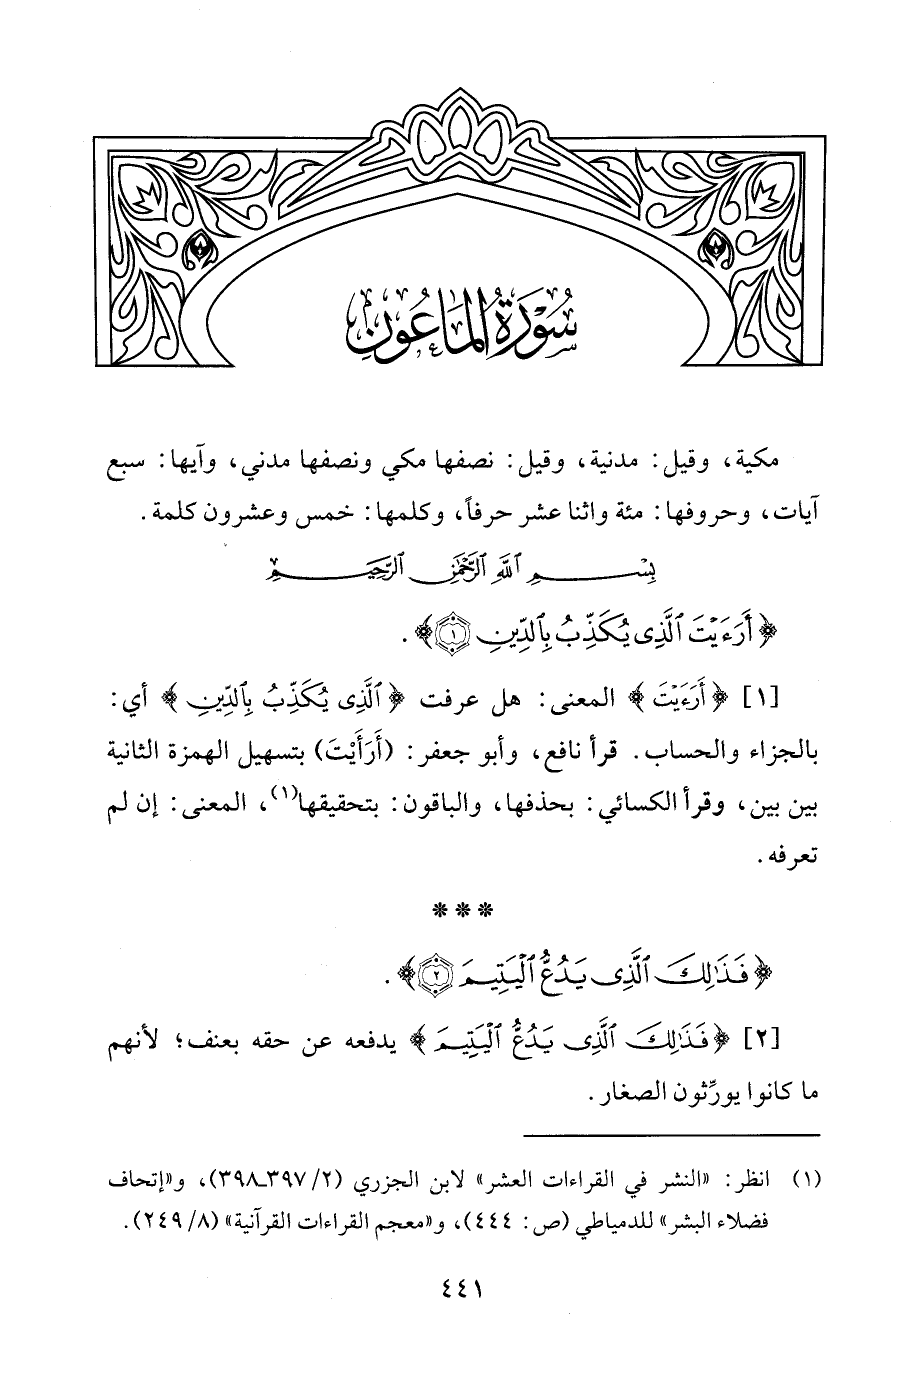 سُورَةُ الْمَاعُونِ
مكية، وقيل: مدنية، وقيل: نصفها مكي ونصفها مدني، وآيها: سبع
آيات، وحروفها: مئة واثنا عشر حرفاً، وكلمها: خمس وعشرون كلمة.
بِسْمِ ٱللَّهِ ٱلرَّحْمَٰنِ ٱلرَّحِيمِ
﴿أَرَءَيْتَ ٱلَّذِى يُكَذِّبُ بِٱلدِّينِ ۝١﴾.
[١] ﴿أَرَءَيْتَ﴾ المعنى: هل عرفت ﴿ٱلَّذِى يُكَذِّبُ بِٱلدِّينِ﴾ أي:
بالجزاء والحساب. قرأ نافع، وأبو جعفر: (أَرَأَيْتَ) بتسهيل الهمزة الثانية
بين بين، وقرأ الكسائي: بحذفها، والباقون: بتحقيقها(١)، المعنى: إن لم
تعرفه.
***
﴿فَذَٰلِكَ ٱلَّذِى يَدُعُّ ٱلْيَتِيمَ ۝٢﴾.
[٢] ﴿فَذَٰلِكَ ٱلَّذِى يَدُعُّ ٱلْيَتِيمَ﴾ يدفعه عن حقه بعنف؛ لأنهم
ما كانوا يورِّثون الصغار.
(١) انظر: «النشر في القراءات العشر» لابن الجزري (٢/ ٣٩٧ـ٣٩٨)، و«إتحاف
فضلاء البشر» للدمياطي (ص: ٤٤٤)، و«معجم القراءات القرآنية» (٨/ ٢٤٩).
٤٤١